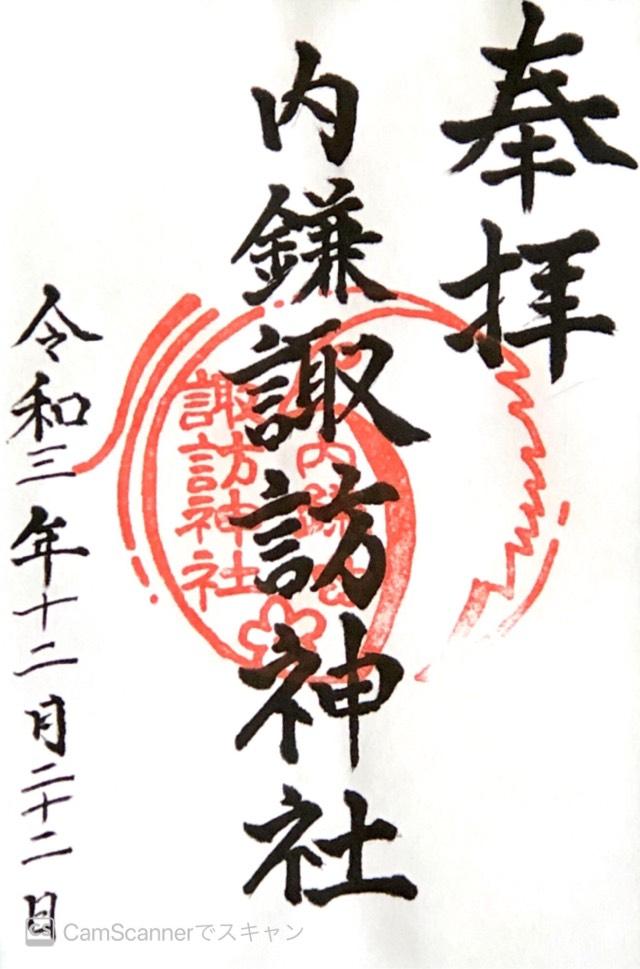 奉拝
内鎌諏訪神社
諏訪神社
令和三年十二月二十二日
CamScannerでスキャン